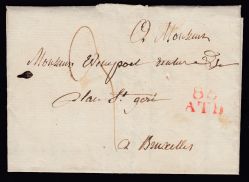 A Monsieur
Monsieur
place St géri
86
ATH
a Bruxelles